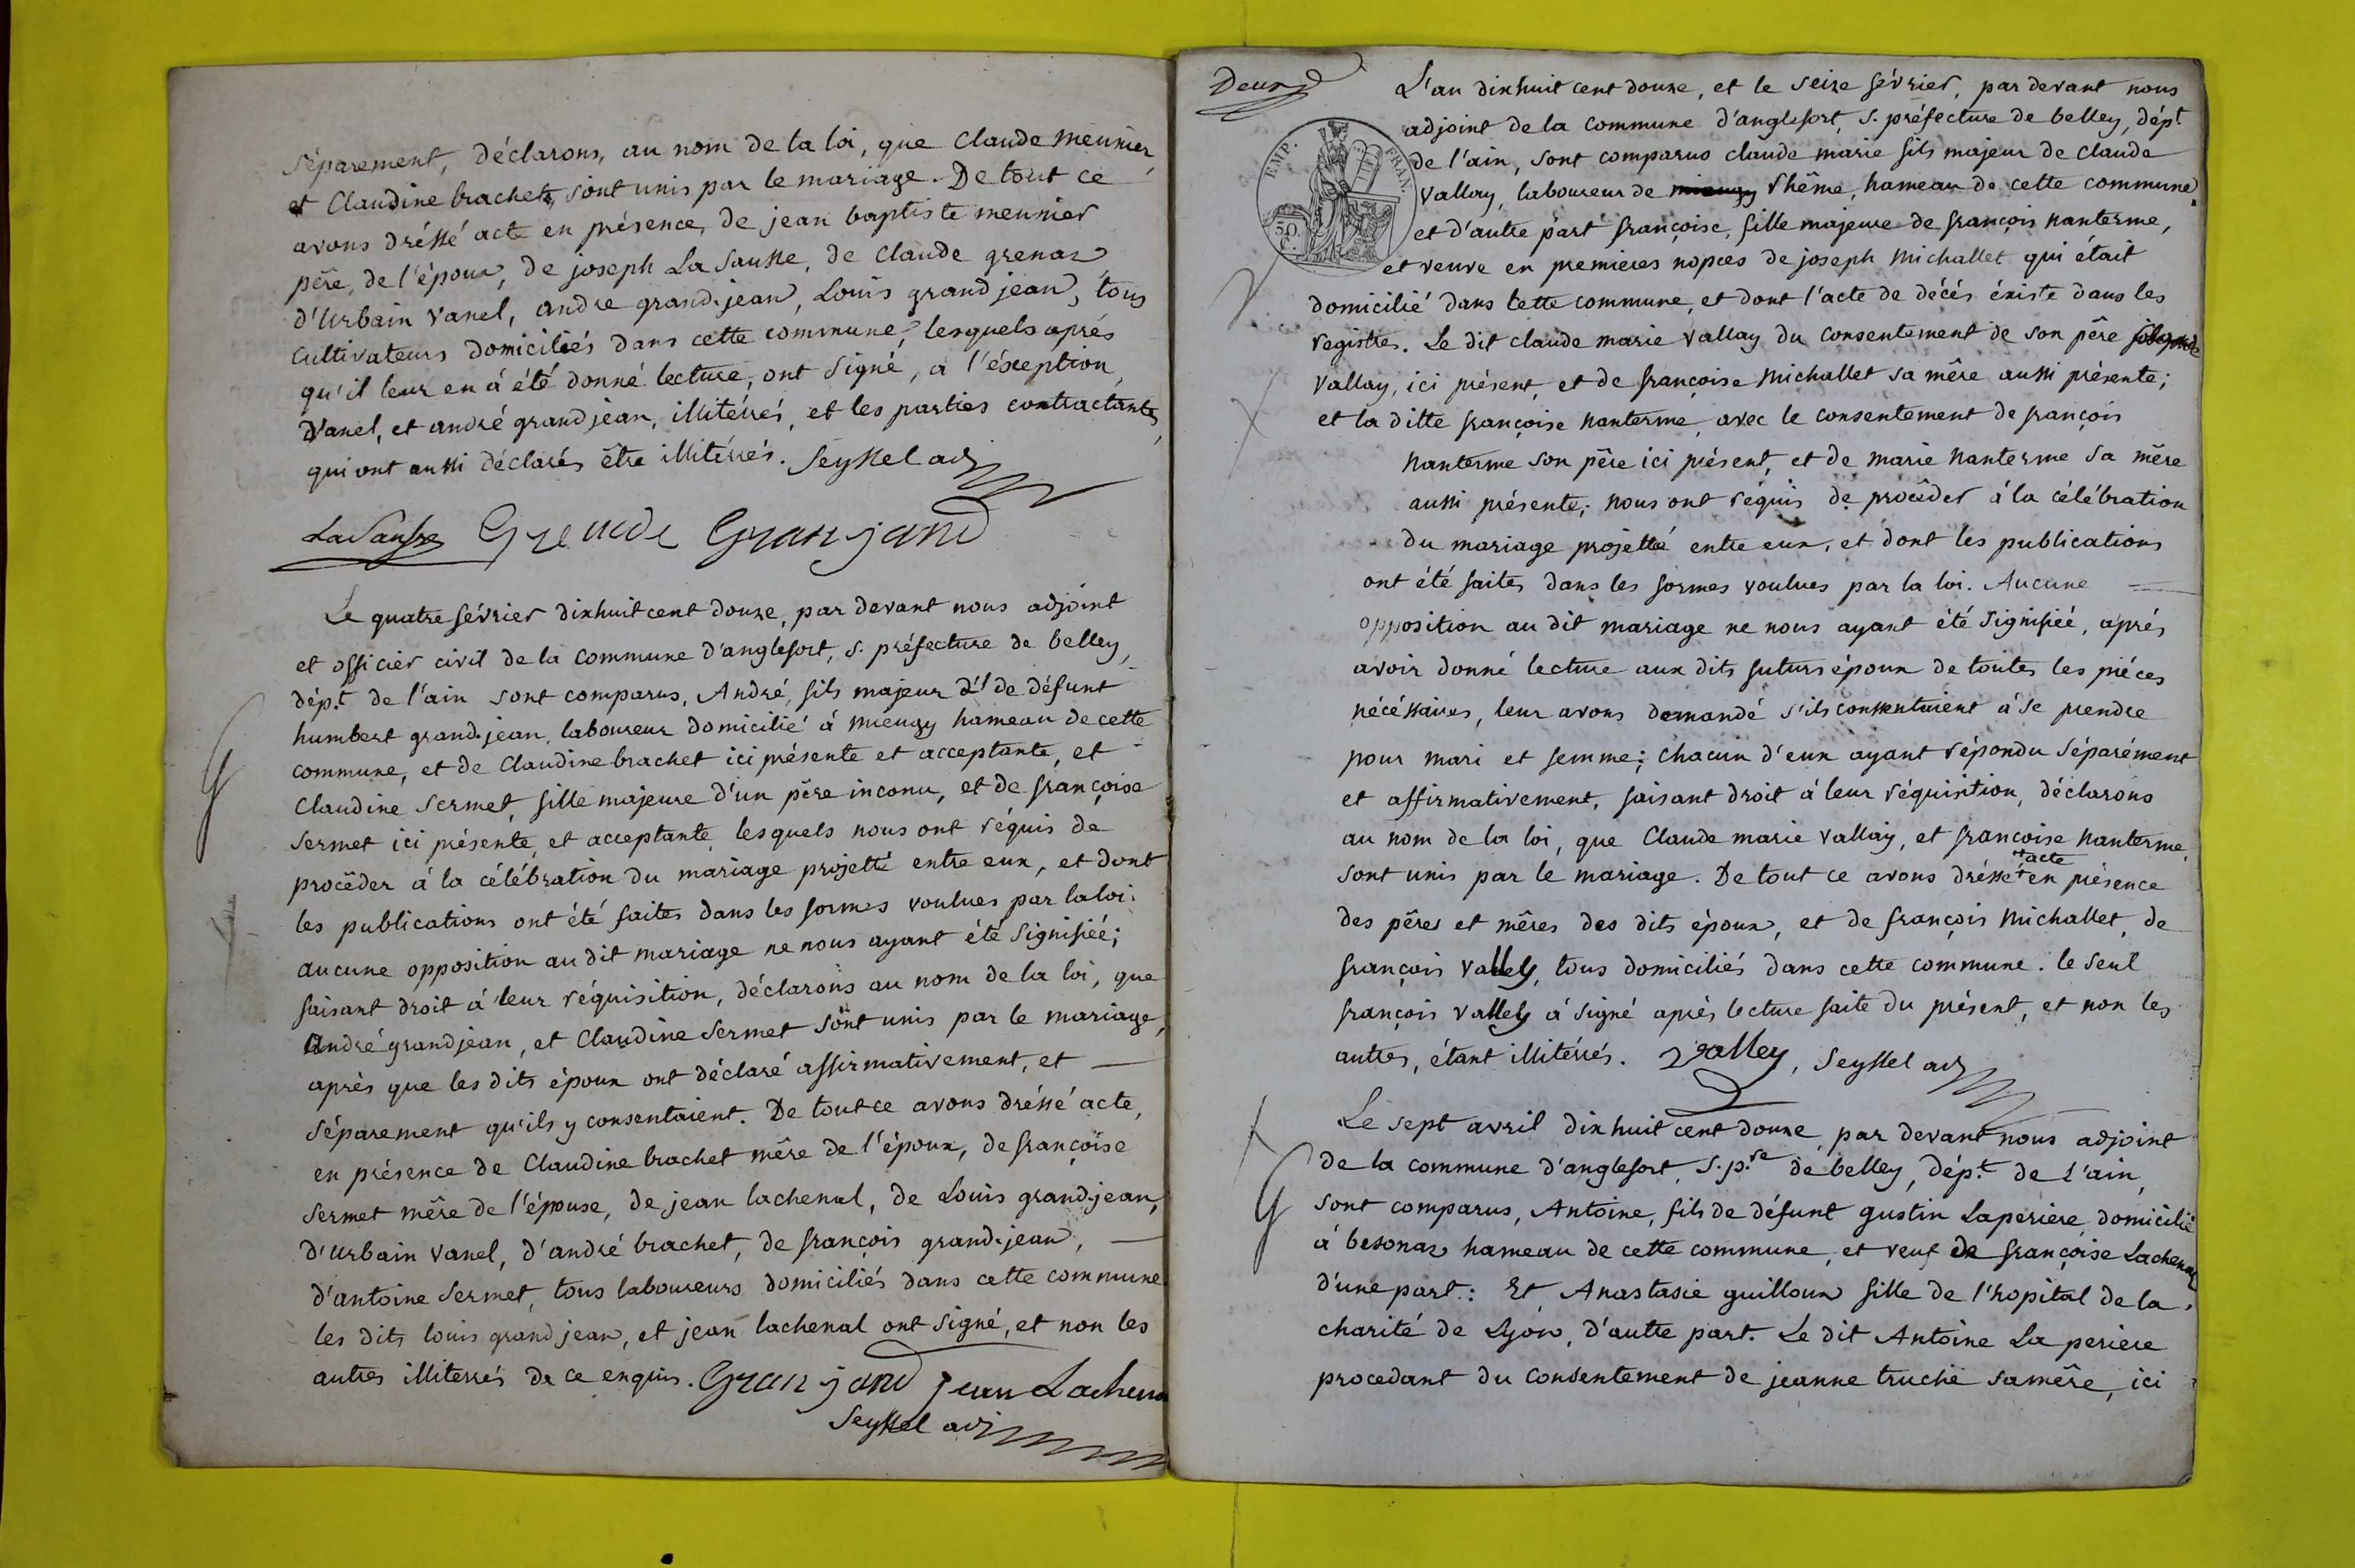 séparement, déclarons, au nom de la loi, que Claude meunier,
et Claudine brachet, sont unis par le mariage. De tout ce
avons dréssé acte en présence, de jean baptiste meunier
père, de l'époux, de joseph La Sausse, de Claude grenaz
d'Urbain vanel, andre grand-jean, Louis grand jean, tous
cultivateurs domiciliés dans cette commune, lesquels aprés
qu'il leur en á été donné lecture, ont signé, a l'éxception,
Vanel, et andré grand jean, illitérrés, et les parties contractantes,
qui ont aussi déclarés être illitérrés. Seyssel adj
LaSausse Grenade Granjand
Le quatre février dixhuit cent douze, par devant nous adjoint
et officier civil de la commune d'anglefort, s. préfecture de belley,
dép.t de l'ain sont comparus, André, fils majeur d'f de défunt
humbert grand-jean, laboureur domicilié á mieugy hameau de cette
commune, et de Claudine brachet ici présente et acceptante, et
Claudine Sermet, fille majeure d'un père inconu, et de françoise
Sermet ici présente, et acceptante, lesquels nous ont réquis de
procêder á la célébration du mariage projetté entre eux, et dont
les publications ont été faites dans les formes voulues par la loi:
aucune opposition au dit mariage ne nous ayant été signifiéé;
faisant droit á leur réquisition, déclarons au nom de la loi, que
André grandjean, et Claudine Sermet sont unis par le mariage,
après que les dits époux ont déclaré affirmativement, et —
séparement qu'ils y consentaient. De tout ce avons dréssé acte,
en présence de Claudine brachet mêre de l'époux, de françoise
Sermet mêre de l'épouse, de jean lachenal, de Louis grand-jean,
d'urbain vanel, d'andré brachet, de françois grand-jean, —
d'antoine Sermet, tous laboureurs domiciliés dans cette commune
les dits louis grand jean, et jean lachenal ont signé, et non les
autres illiterrés de ce enquis. Granjand jean Lachena
Seyssel adj
Deux
EMP. FRAN.
50. C.
L'an dixhuit cent douze, et le seize février, par devant nous
adjoint de la commune d'anglefort, S. préfecture de belley, dép.t
de l'ain, sont comparus claude marie fils majeur de claude
vallay, laboureur de mieugy rhême, hameau de cette commune,
et d'autre part françoise, fille majeure de françois nanterme,
et veuve en premieres nopces de joseph Michallet qui était
domicilié dans cette commune, et dont l'acte de décés éxiste dans les
registres. Le dit claude marie vallay du consentement de son père
vallay, ici présent, et de françoise Michallet sa mêre aussi présente;
et la ditte françoise nanterme, avec le consentement de françois
nanterme son pêre ici présent, et de marie nanterme sa mêre
aussi présente; nous ont réquis de procêder á la célébration
du mariage projetté entre eux, et dont les publications
ont été faites dans les formes voulues par la loi. Aucune
opposition au dit mariage ne nous ayant été signifiéé, aprés
avoir donné lecture aux dits futurs époux de toutes les piéces
nécéssaires, leur avons demandé s'ils consentaient á se prendre
pour mari et femme; chacun d'eux ayant répondu séparément
et affirmativement, faisant droit á leur réquisition, déclarons
au nom de la loi, que Claude marie vallay, et francoise nanterme,
sont unis par le mariage. De tout ce avons drésse + en présence
+ acte
des pêres et mêres des dits époux, et de françois Michallet, de
françois valley, tous domiciliés dans cette commune. le seul
françois valley á signé après lecture faite du présent, et non les
autres, étant illitérrés. Valley, Seyssel adj
Le sept avril dixhuit cent douze, par devant nous adjoint
de la commune d'anglefort, S.p.re de belley, dép.t de L'ain,
sont comparus, Antoine, fils de défunt gustin Laperiere, domicilié
á besonaz hameau de cette commune, et veuf de françoise Lachenal
d'une part: Et Anastasie guilloux fille de l'hopital de la
charité de Lyon, d'autre part. Le dit Antoine La periere
procedant du consentement de jeanne truche sa mêre, ici